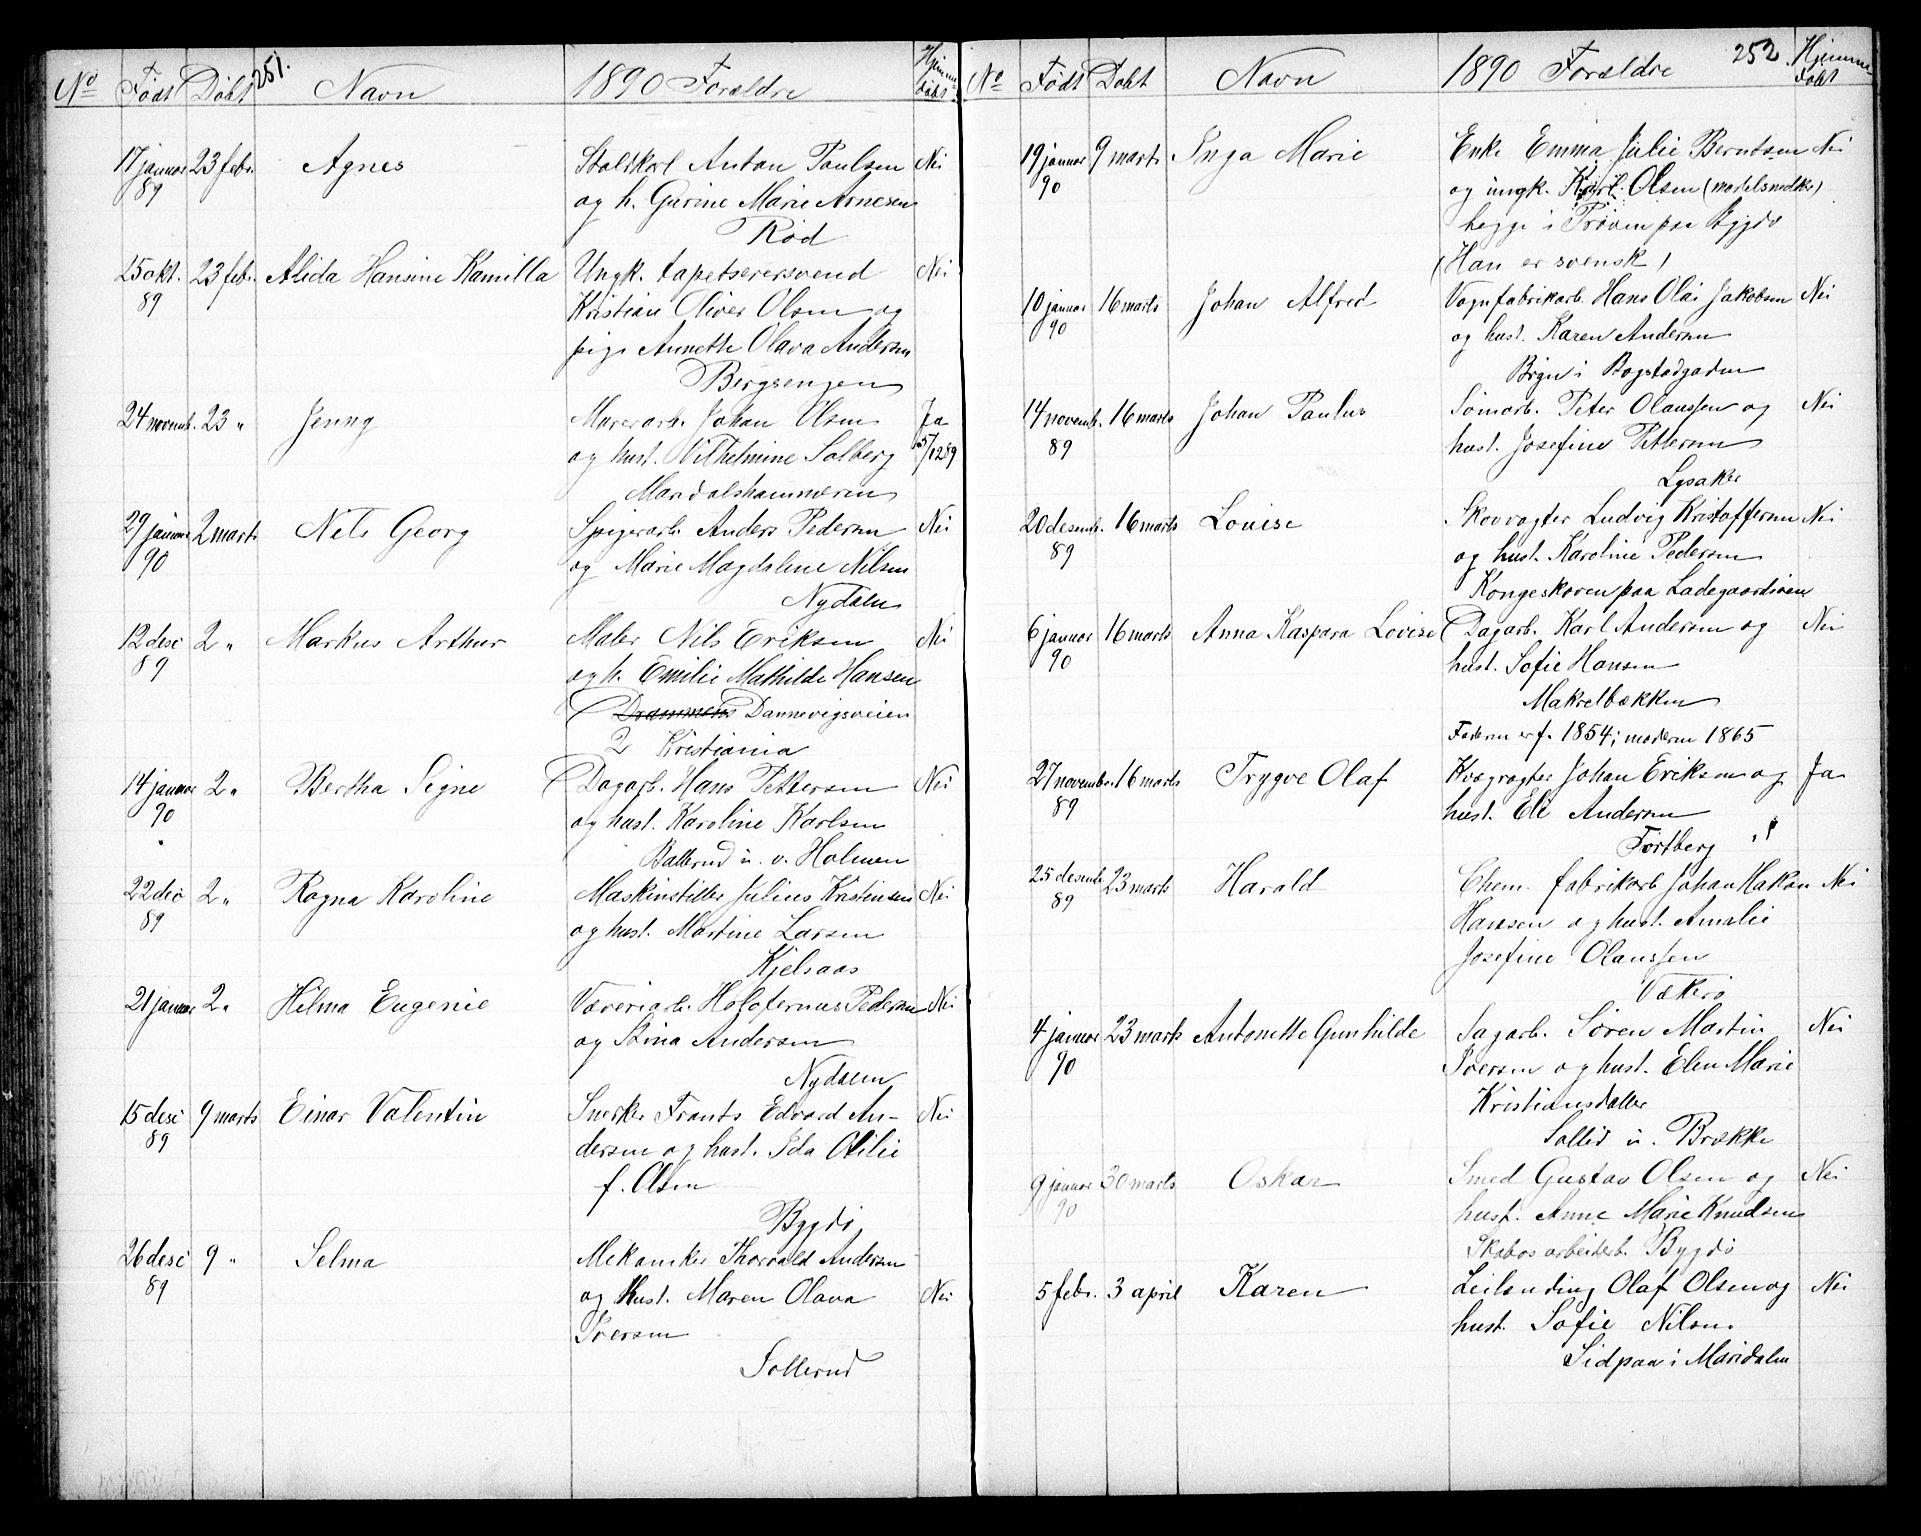 251.
No Født Døbt Navn 1890 Forældre Hjemmedøbt
17 januar 89 23 febr. Agnes Staldkarl Anton Paulsen Nei
og h. Gurine Marie Arnesen
Rød
25 okt. 89 23 febr. Alida Hansine Kamilla Ungk. tapetserersvend Nei
Kristian Oliver Olsen og
pige Annette Olava Andersen
Bergsengen
24 novemb. 23 " Jenny Murerarb. Johan Olsen Ja
og hust. Vilhelmine Solberg 5/12 89
Maridalshammeren
29 januar 90 2 marts Nels Georg Spigerarb. Anders Pedersen Nei
og Marie Magdalene Nilsen
Nydalen
12 desc 89 2 " Markus Arthur Maler Nils Eriksen Nei
og h. Emilie Mathilde Hansen
Drammens Dannevigsveien
2 Kristiania
14 januar 90 2 " Bertha Signe Dagarb. Hans Pettersen Nei
og hust. Karoline Karlsen
Ballerud u. v. Holmen
22 desc 89 2 " Ragna Karoline Maskinstiller Julius Kristensen Nei
og hust. Martine Larsen
Kjelsaas
21 januar 2 " Hilma Eugenie Væveriarb. Holofernus Pedersen Nei
og Stina Andersen
Nydalen
15 desc 89 9 marts Einar Valentin Snerker Frants Edvard An- Nei
dersen og hust. Ida Otilie
f. Olsen
Bygdø
26 desc 89 9 " Selma Mekaniker Thorvald Andersen
og Hust. Maren Olava Nei
Iversen
Sollerud
252
No Født Døbt Navn 1890 Forældre Hjemmedøbt
19 januar 90 9 marts Inga Marie Enke Emma Julie Berntsen Nei
og ungk. Karl Olsen (mølelsnedker)
begge i Prøven paa Bygdø
(Han er svensk)
10 januar 90 16 marts Johan Alfred Vognfabrikarb. Hans Olai Jakobsen Nei
og hust. Karen Andersen
Brgn i Bogstadgaden
14 novemb. 89 16 marts Johan Paulus Tømarb. Peter Olaussen og Nei
hust. Josefine Pettersen
Lysaker
20 desemb. 89 16 marts Louise Skovvogter Ludvig Kristoffersen Nei
og hust. Karoline Pedersen
Kongeskoven paa Ladegaardsøen
6 januar 90 16 marts Anna Kaspara Lovise Dagarb. Karl Andersen og Nei
hust. Sofie Hansen
Makrelbækken
Faderen er f. 1854; moderen 1865
27 novembr. 89 16 marts Trygve Olaf Kvægrøgter Johan Eriksen og Ja
hust. Eli Andersen
Tortberg
25 desemb 89 23 marts Harald Chem. fabrikarb Johan Hakon Nei
Hansen og hust. Amalie
Josefine Olaussen
Vækerø
4 januar 90 23 marts Antonette Gunhilde Sagarb. Søren Martin Nei
Iversen og hust. Elen Marie
Kristiansdatter
Sollid u. Brække
9 januar 90 30 marts Oskar Smed Gustav Olsen og Nei
hust. Anne Marie Knudsen
Skabos arbeiderb. Bygdø
5 febr. 3 april Karen Leilending Olaf Olsen og Nei
hust. Sofie Nilsen
Sidpaa i Maridalen